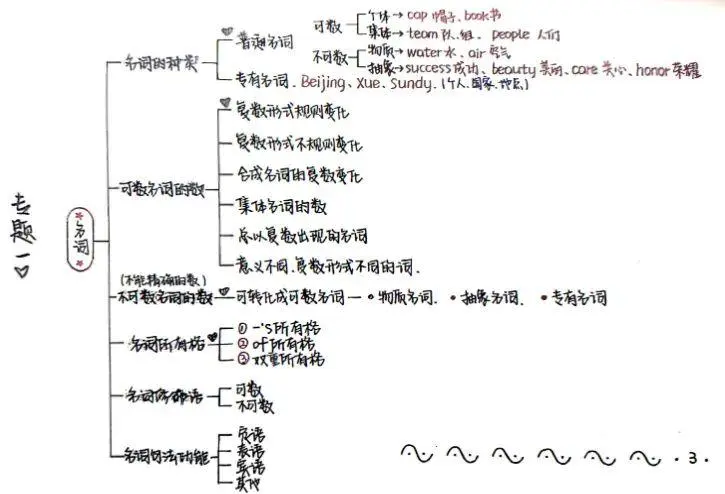 专题一
名词
名词的种类
普通名词
可数
个体→cap 帽子、book书
集体→team 队、组、people 人们
不可数
物质→water水、air 空气
抽象→success成功、beauty 美丽、care 关心、honor荣耀
专有名词、Beijing、Xue、Sundy、(个人、国家、地点)
可数名词的数
复数形式规则变化
复数形式不规则变化
合成名词的复数变化
集体名词的数
总以复数出现的名词
意义不同、复数形式不同的词、
(不能精确的数)
不可数名词的数
可转化成可数名词—•物质名词、•抽象名词、•专有名词
名词所有格
①-'s所有格
②of所有格
③双重所有格
名词修饰语
可数
不可数
名词句法功能
定语
表语
宾语
其他
·3·